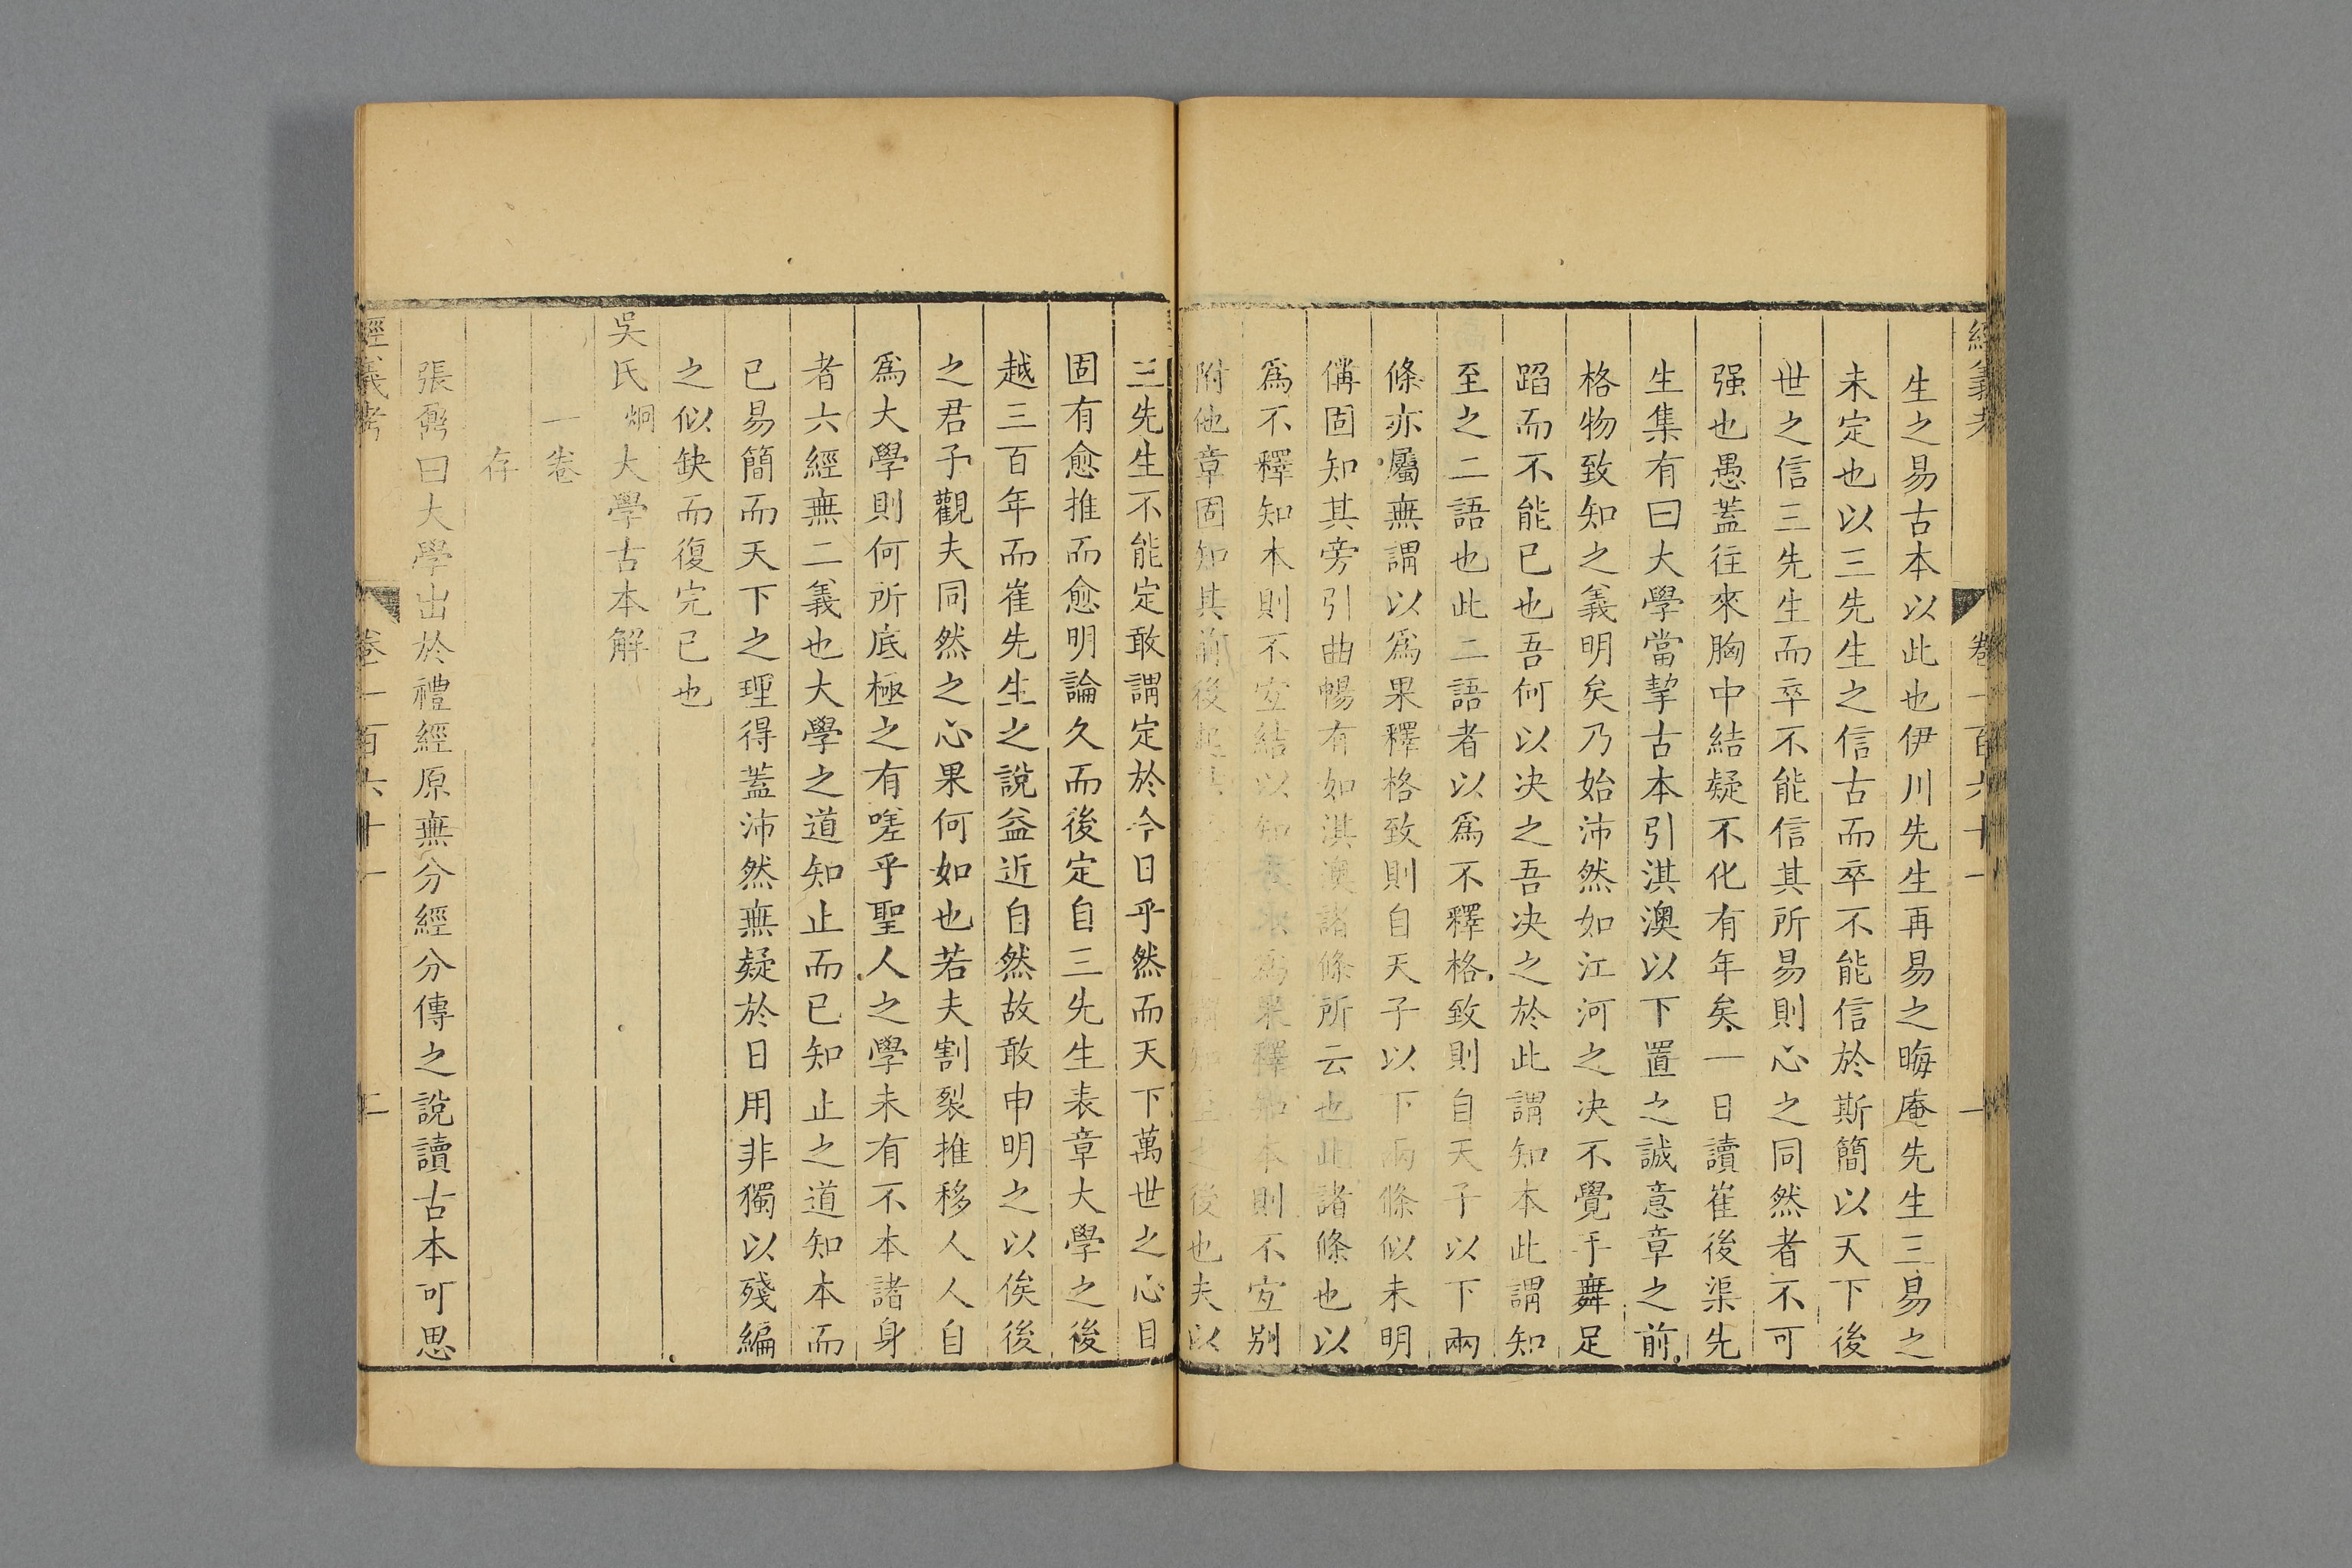 經義考 卷一百六十一 一
生之易古本以此也伊川先生再易之晦庵先生三易之
未定也以三先生之信古而卒不能信於斯簡以天下後
世之信三先生而卒不能信其所易則心之同然者不可
强也愚蓋往來胸中結疑不化有年矣一日讀崔後渠先
生集有曰大學當挈古本引淇澳以下置之誠意章之前
格物致知之義明矣乃始沛然如江河之决不覺手舞足
蹈而不能已也吾何以决之吾决之於此謂知本此謂知
至之二語也此二語者以爲不釋格致則自天子以下兩
條亦屬無謂以爲果釋格致則自天子以下兩條似未明
備固知其旁引曲暢有如淇澳諸條所云也此諸條也以
爲不釋知本則不宜結以知本以爲果釋知本則不宜别
附他章固知其前後起 之後也夫以
三先生不能定敢謂定於今日乎然而天下萬世之心目
固有愈推而愈明論久而後定自三先生表章大學之後
越三百年而崔先生之說益近自然故敢申明之以俟後
之君子觀夫同然之心果何如也若夫割裂推移人人自
爲大學則何所底極之有嗟乎聖人之學未有不本諸身
者六經無二義也大學之道知止而已知止之道知本而
已易簡而天下之理得蓋沛然無疑於日用非獨以殘編
之似缺而復完已也
吳氏烱大學古本解
一卷
存
張雲曰大學出於禮經原無分經分傳之說讀古本可思
經義考 卷一百六十一 二